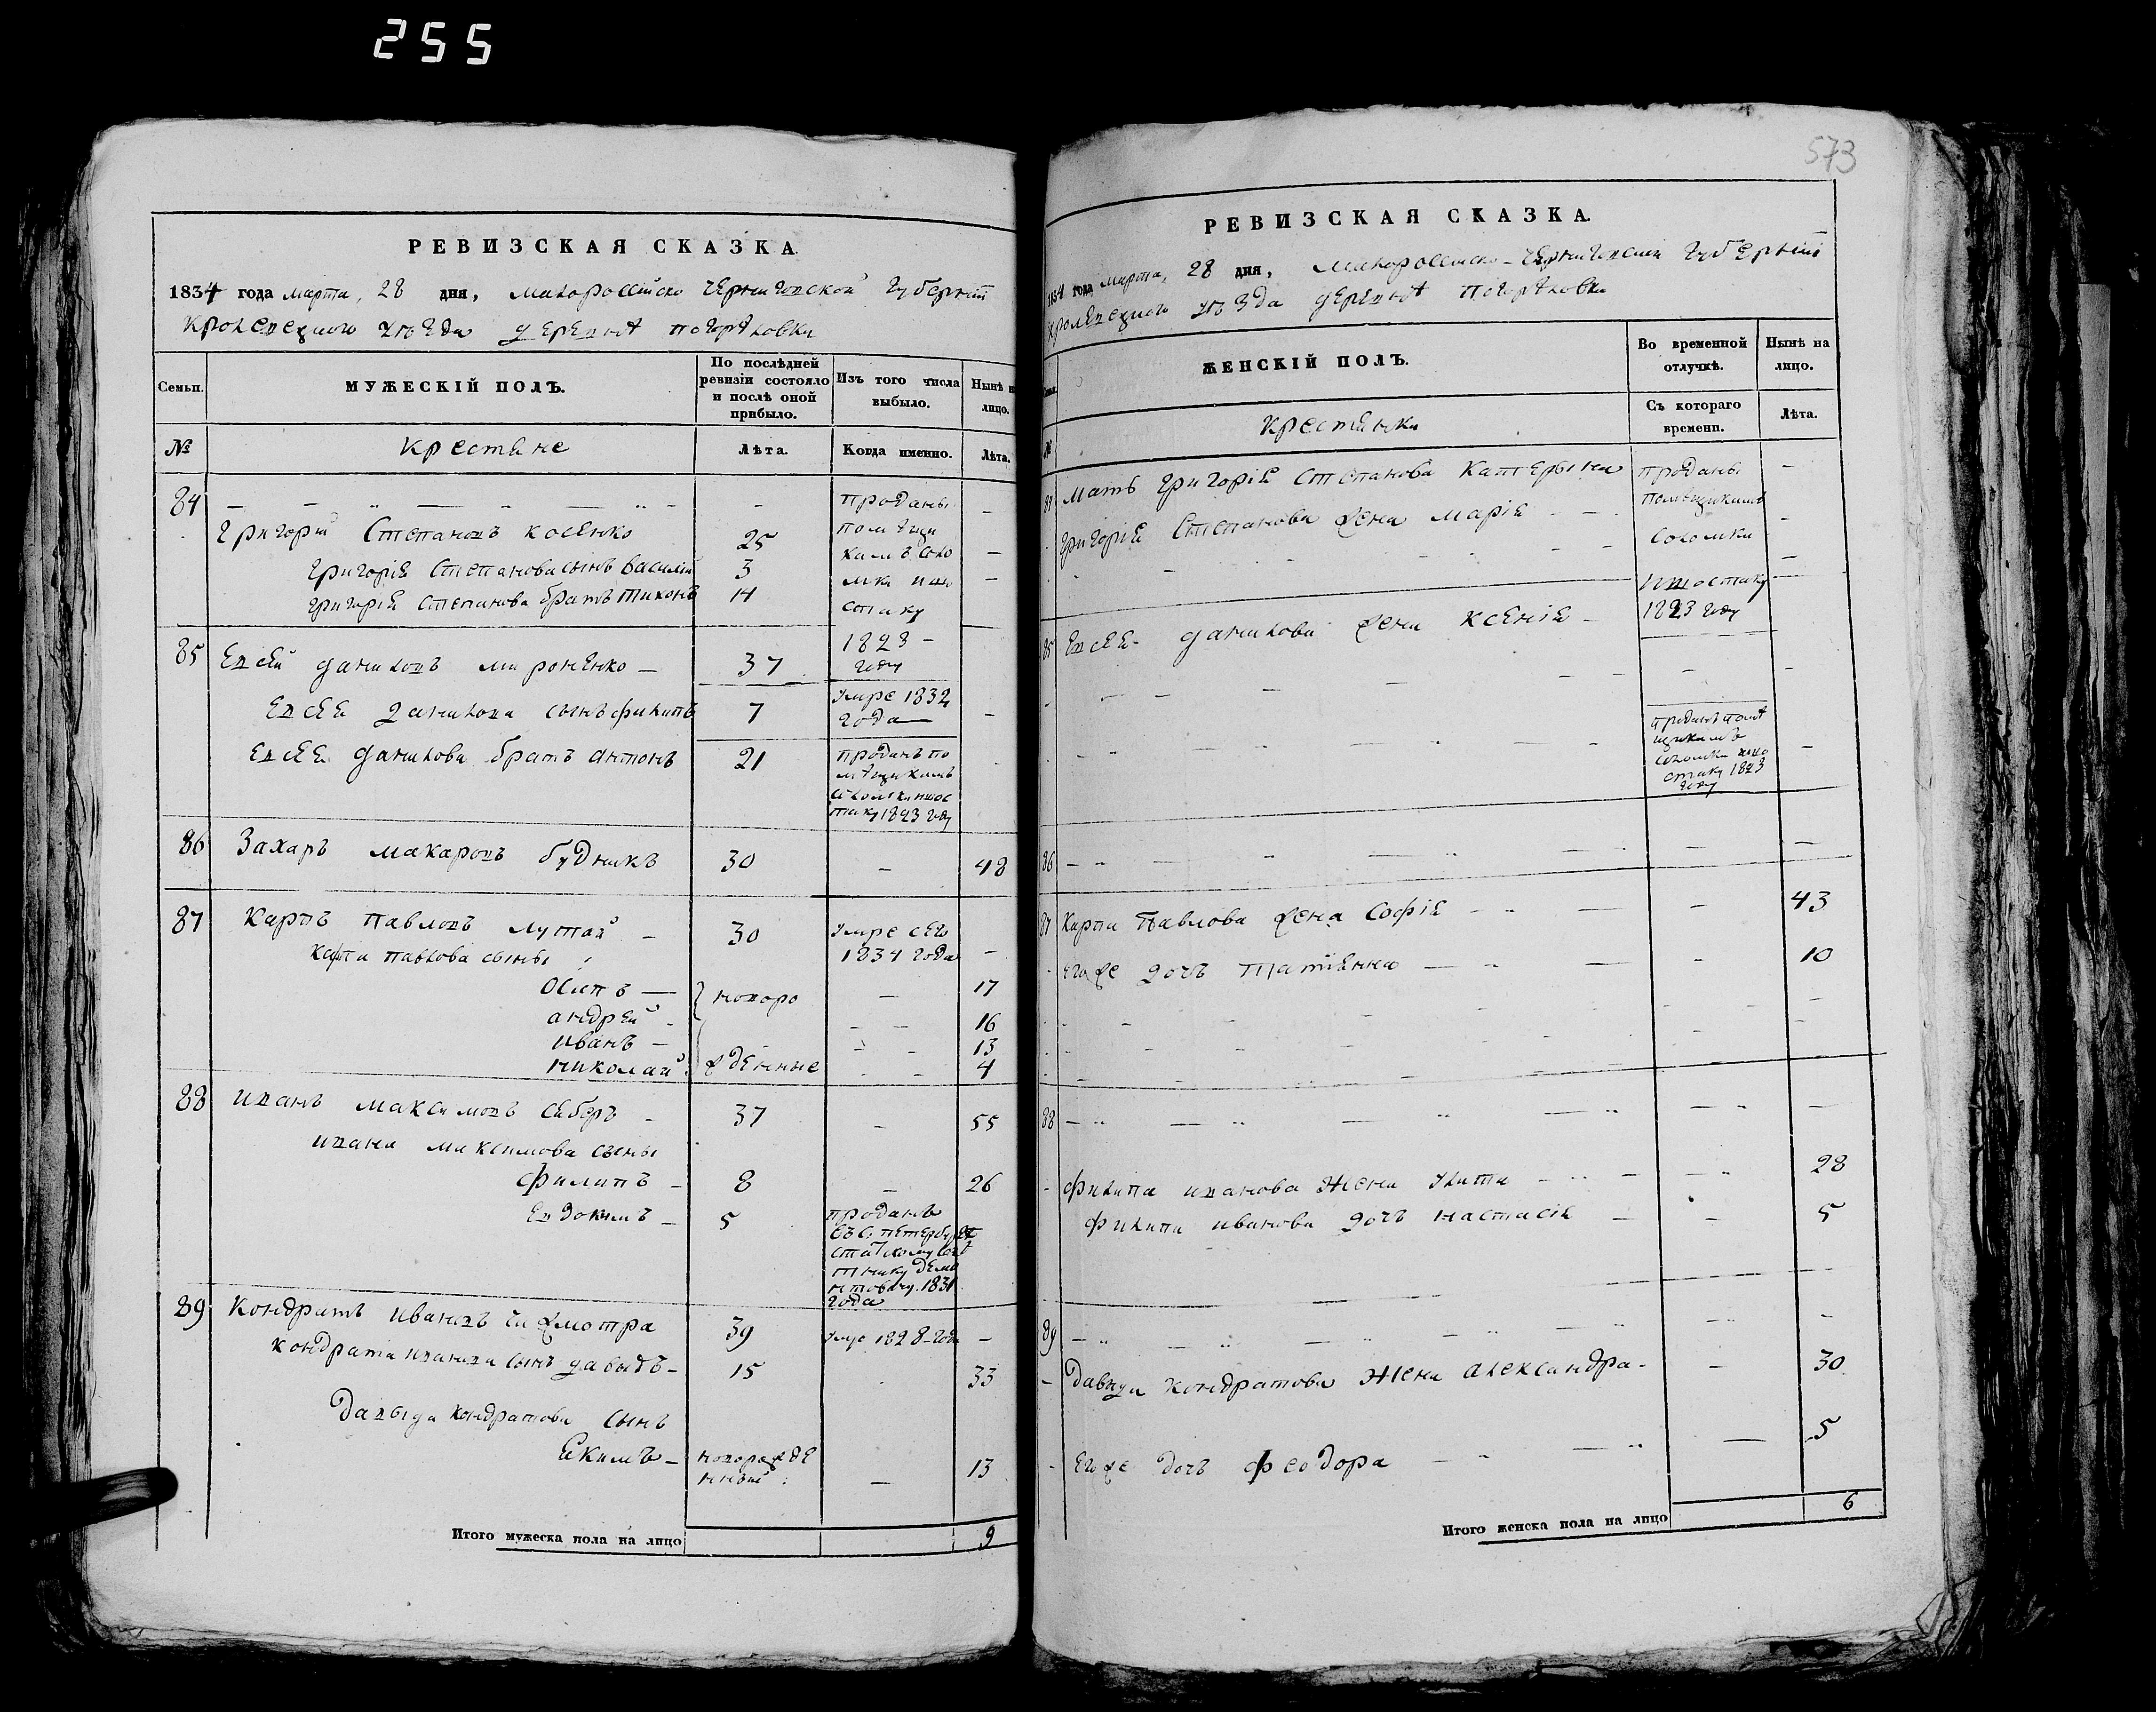 255
573
РЕВИЗСКАЯ СКАЗКА.
1834 года марта, 28 дня, малороссійско черниговской губерніи
кролевецкого уѣзда деревнѣ погорѣловки
Семьи. МУЖЕСКІЙ ПОЛЪ. По послѣдней ревизіи состояло и послѣ оной прибыло. Изъ того числа выбыло. Нынѣ на лицо.
№ крестяне Лѣта. Когда именно. Лѣта.
84 — — — — — проданы —
Григорій Степановъ косенко 25 помѣщи
Григорія Степанова сынъ василій 3 камъ соло —
григорія степанова братъ тихонъ 14 мки ишо —
стаку
85 Евсей даниловъ мироненко — 37 1823 — году
Евсея данилова сынъ филипъ 7 умре 1832 года —
Евсея данилова братъ антонъ 21 проданъ по
мѣщикамъ
соломки ишос
таку 1823 году
86 Захаръ макаровъ будникъ 30 — 48
87 карпъ павловъ лутай — 30 умре сего
карпа павлова сыны 1834 года —
Осипъ — новоро — 17
андрей — — — 16
иванъ — — — 13
николай жденные — — 4
88 иванъ максимовъ сяберъ — 37 — 55
ивана максимова сыны
филипъ — 8 — 26
Евдокимъ — 5 проданъ
въ С. петербурге
статскому совѣ
тнику деме
нтовичу 1831
года
89 Кондратъ ивановъ 39 умре 1828 — года —
кондрата иванова сынъ давыдъ — 15 33
Давыда кондратова сынъ
Екимъ — новорожде
нный — 13
Итого мужеска пола на лицо 9
РЕВИЗСКАЯ СКАЗКА.
1834 года марта, 28 дня, малороссійско — черниговской губерніи
кролевецкого уѣзда деревнѣ погорѣловки
ЖЕНСКІЙ ПОЛЪ. Во временной отлучкѣ. Нынѣ на лицо.
№ крестянки Съ котораго времени. Лѣта.
мать григорія степанова катерына проданы —
помѣщикамъ
григорія Степанова жена марія — — соломки —
ишостаку —
1823 году
85 Евсея данилова жена ксенія —
— — — — — —
проданъ помѣ
щикамъ
соломки ишо
стаку 1823
году
86 — — — — — —
87 карпа Павлова жена Софія — — — 43
егоже дочъ татіянна — — — 10
88 — — — — — —
филипа иванова жена улита — — 28
филипа иванова дочъ настасія — — 5
89 — — — — — —
Давыда кондратова жена александра — — 30
Егоже дочъ феодора — — 5
Итого женска пола на лицо 6